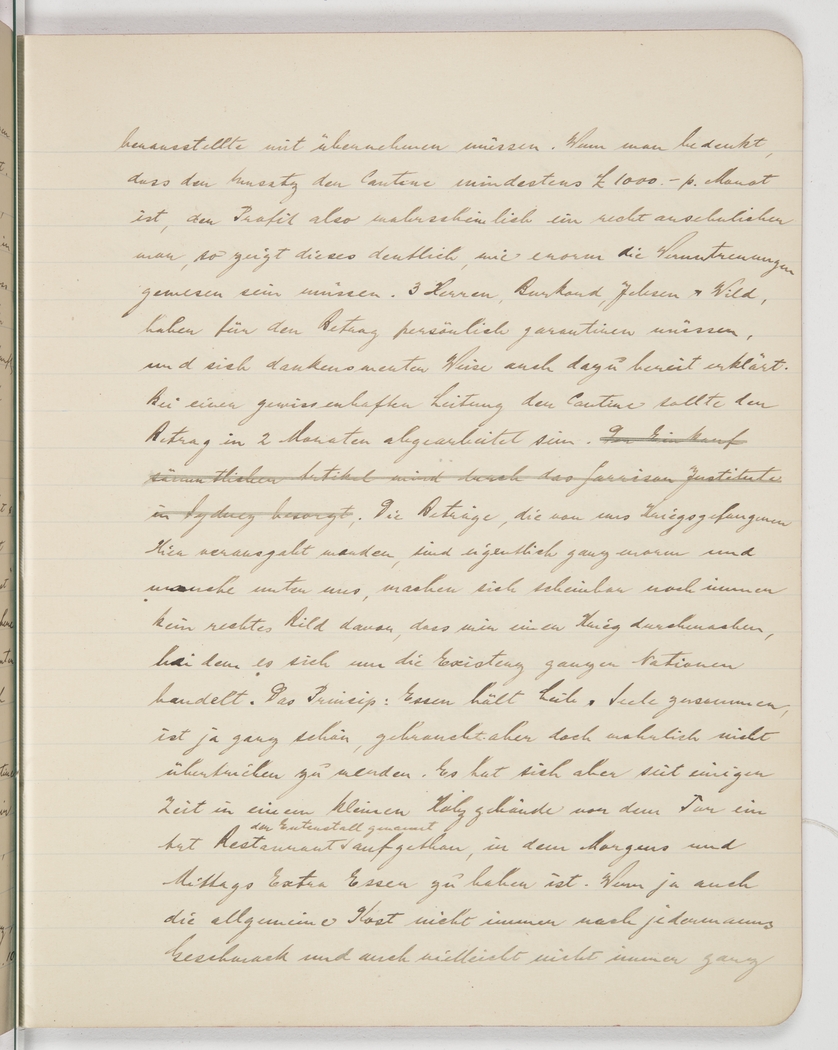 herausstellte mit übernehmen müssen. Wenn man bedenkt,
dass der Umsatz der Cantine mindestens £ 1000.- p. Monat
ist, der Profit also wahrscheinlich ein recht ansehnlicher
war, so zeigt dieses deutlich, wie enorm die Veruntreuungen
gewesen sein müssen. 3 Herren, Burkard, Jebsen & Wild,
haben für den Betrag persönlich garantiren müssen,
und sich dankenswerter Weise auch dazu bereit erklärt.
Bei einer gewissenhaften Leitung der Cantine sollte der
Betrag in 2 Monaten abgearbeitet sein. Der Einkauf
sämmtlicher Artikel wird durch das Garrison Institute
in Sydney besorgt. Die Beträge, die von uns Kriegsgefangenen
hier verausgabt werden, sind eigentlich ganz enorm und
manche unter uns, machen sich scheinbar noch immer
kein rechtes Bild davon, dass wir einen Krieg durchmachen,
bei dem es sich um die Existenz ganzer Nationen
handelt. Das Princip: Essen hält Leib & Seele zusammen,
ist ja ganz schön, gebraucht aber doch wahrlich nicht
übertrieben zu werden. Es hat sich aber seit einiger
Zeit in einem kleinen Holzgebäude vor dem Tor ein
der Entenstall genannt
Art Restaurant aufgethan, in dem Morgens und
Mittags Extra Essen zu haben ist. Wenn ja auch
die allgemeine Kost nicht immer nach jedermanns
Geschmack und auch vielleicht nicht immer ganz